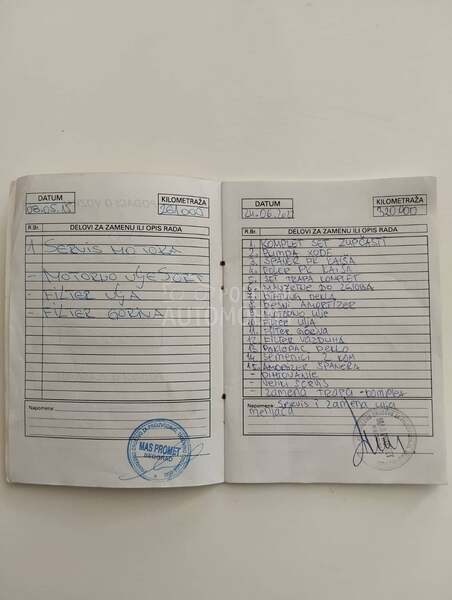 DATUM
KILOMETRAŽA
08.05.15
261000
R.Br.
DELOVI ZA ZAMENU ILI OPIS RADA
1 SERVIS MOTORA
- MOTORNO ULJE 5L
- FILTER ULJA
- FILTER GORIVA
Napomene
MAS PROMET
BEOGRAD
DATUM
KILOMETRAŽA
320000
R.Br.
DELOVI ZA ZAMENU ILI OPIS RADA
1. KOMPLET SET ZUPČASTI
2. PUMPA VODE
3. ŠPANER PK KAIŠA
4. ROLER PK KAIŠA
5. SET TRAPA KOMPLET
6.
7. DIHTUNG DEKLA
8. DESNI AMORTIZER
9. MOTORNO ULJE
10. FILTER ULJA
11. FILTER GORIVA
12. FILTER VAZDUHA
13. POKLOPAC DEKLO
14. SEMERINZI KOM
15. AMORTIZER ŠPANERA
- DIHTOVANJE
- VELIKI SERVIS
- ZAMENA TRAPA - KOMPLET
Napomene Servis i zamena ulja
menjača